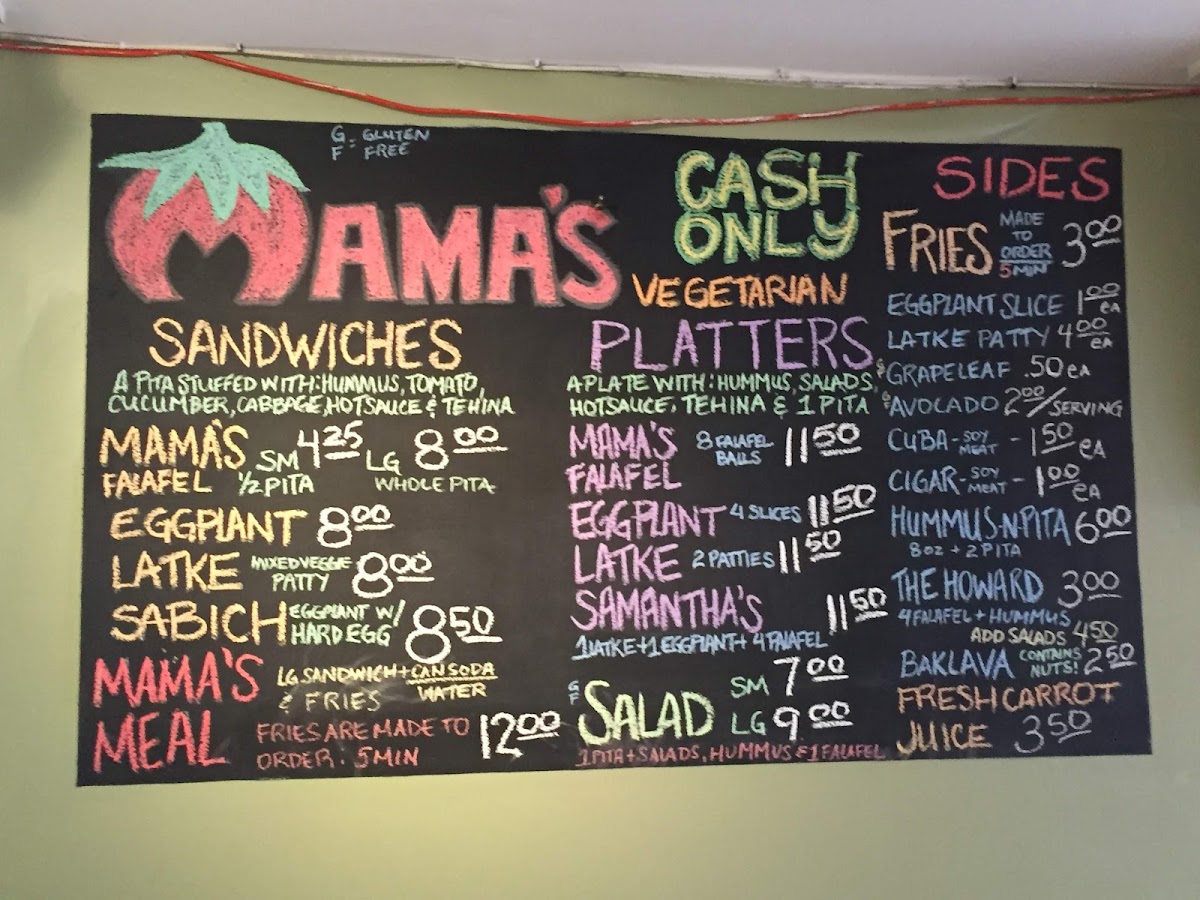 G = GLUTEN
F FREE
MAMA'S
CASH
ONLY
VEGETARIAN
SANDWICHES
A PITA STUFFED WITH: HUMMUS, TOMATO,
CUCUMBER, CABBAGE, HOT SAUCE & TEHINA
MAMA'S SM 4.25 LG 8.00
FALAFEL 1/2 PITA WHOLE PITA
EGGPLANT 8.00
LATKE MIXED VEGGIE PATTY 8.00
SABICH EGGPLANT W/ HARD EGG 8.50
MAMA'S LG SANDWICH + CAN SODA
& FRIES WATER
MEAL FRIES ARE MADE TO
ORDER. 5 MIN 12.00
PLATTERS
A PLATE WITH: HUMMUS, SALADS,
HOTSAUCE, TEHINA & 1 PITA
MAMA'S 8 FALAFEL BALLS 11.50
FALAFEL
EGGPLANT 4 SLICES 11.50
LATKE 2 PATTIES 11.50
SAMANTHA'S 11.50
1 LATKE + 1 EGGPLANT + 4 FALAFEL
GF SALAD SM 7.00
LG 9.00
1 PITA + SALADS, HUMMUS & 1 FALAFEL
SIDES
FRIES MADE TO ORDER 5 MIN 3.00
EGGPLANT SLICE 1.00 EA
LATKE PATTY 4.00 EA
GF GRAPELEAF .50 EA
GF AVOCADO 2.00/SERVING
CUBA - SOY MEAT - 1.50 EA
CIGAR - SOY MEAT - 1.00 EA
HUMMUS-N-PITA 6.00
8 OZ + 2 PITA
THE HOWARD 3.00
4 FALAFEL + HUMMUS
ADD SALADS 4.50
BAKLAVA CONTAINS NUTS! 2.50
FRESH CARROT
JUICE 3.50